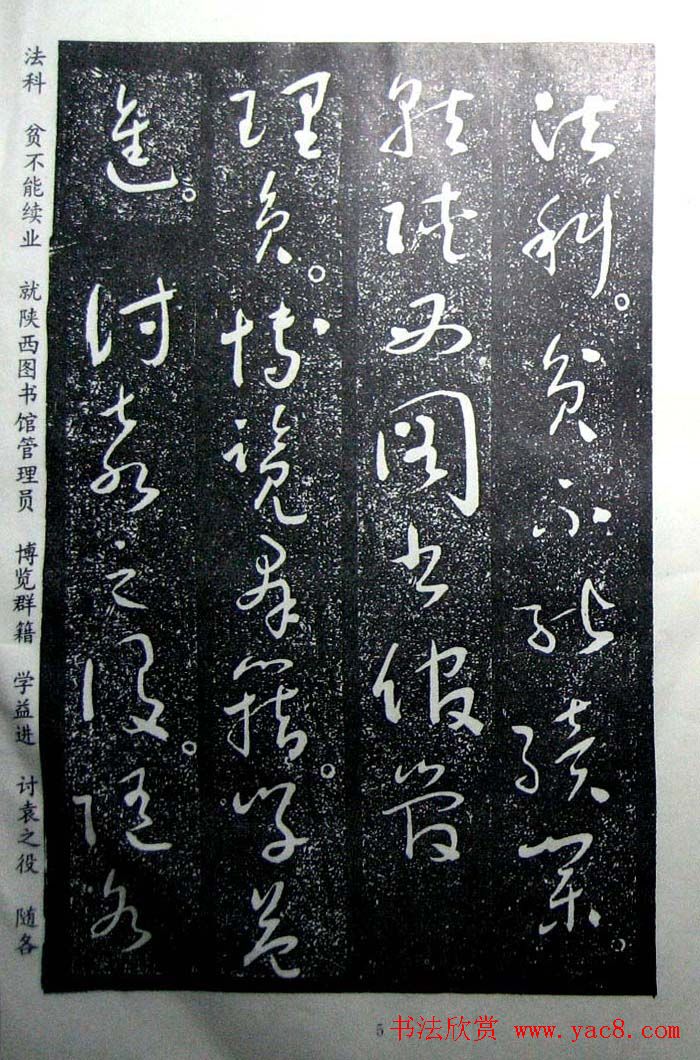 法科。貧不能續業。
就陝西图书館管
理員。博覽羣籍。学益
進。討袁之役。随各
法科 贫不能续业 就陕西图书馆管理员 博览群籍 学益进 讨袁之役 随各
5
书法欣赏 www.yac8.com